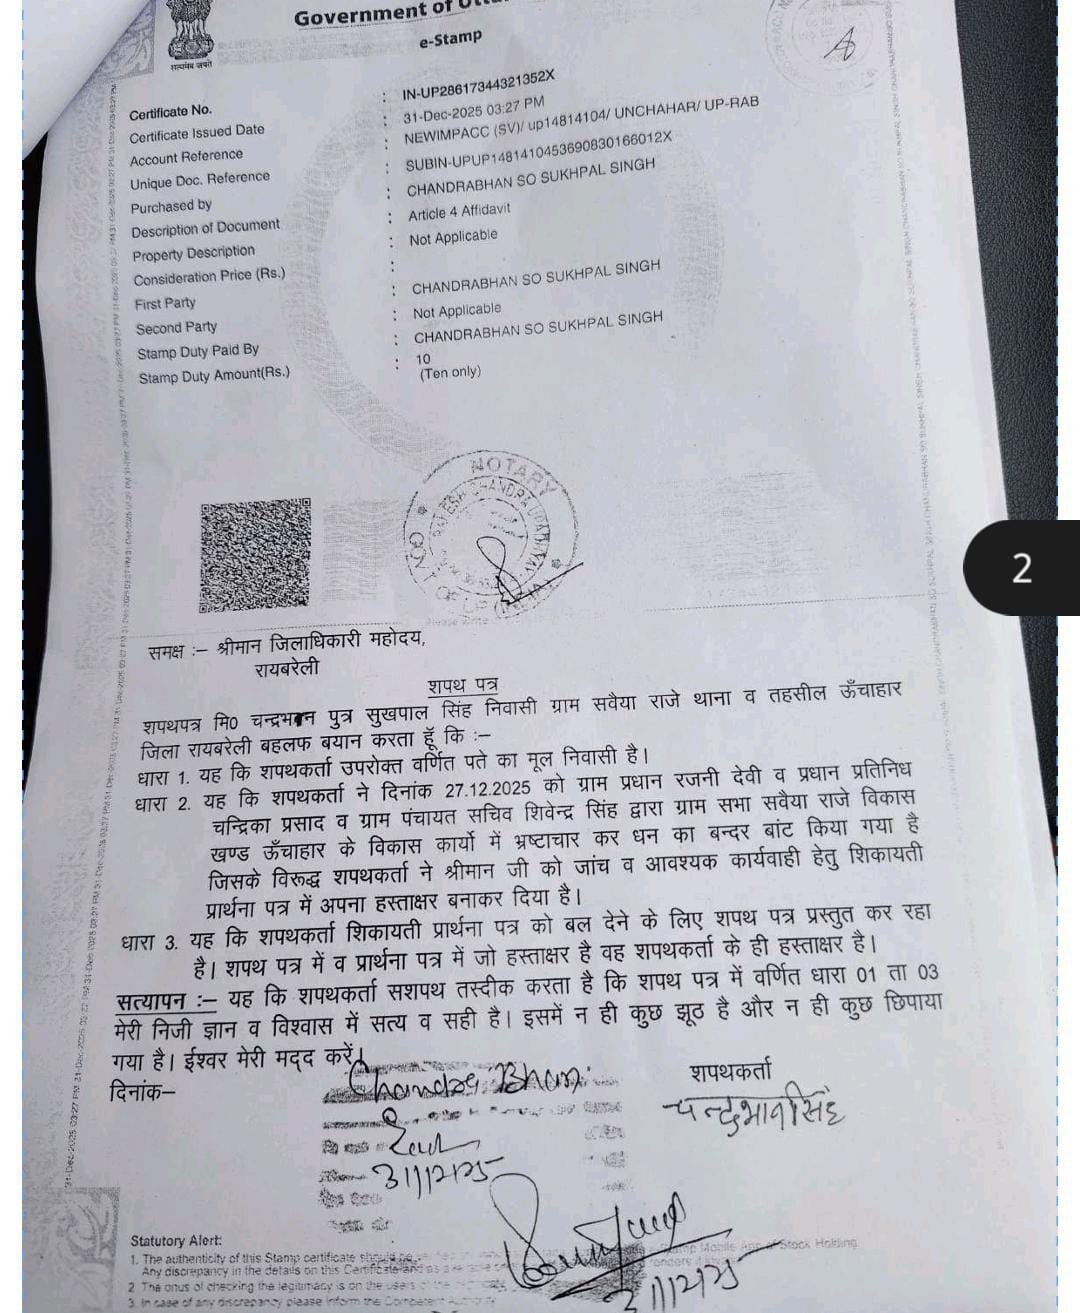 Government of
e-Stamp
सत्यमेव जयते
Certificate No. : IN-UP28617344321352X
Certificate Issued Date : 31-Dec-2025 03:27 PM
Account Reference : NEWIMPACC (SV)/ up14814104/ UNCHAHAR/ UP-RAB
Unique Doc. Reference : SUBIN-UPUP1481410453690830166012X
Purchased by : CHANDRABHAN SO SUKHPAL SINGH
Description of Document : Article 4 Affidavit
Property Description : Not Applicable
Consideration Price (Rs.) :
First Party : CHANDRABHAN SO SUKHPAL SINGH
Second Party : Not Applicable
Stamp Duty Paid By : CHANDRABHAN SO SUKHPAL SINGH
Stamp Duty Amount(Rs.) : 10
(Ten only)
NOTARY
2
समक्ष :– श्रीमान जिलाधिकारी महोदय,
रायबरेली
शपथ पत्र
शपथपत्र मि0 चन्द्रभान पुत्र सुखपाल सिंह निवासी ग्राम सवैया राजे थाना व तहसील ऊँचाहार
जिला रायबरेली बहलफ बयान करता हूँ कि :–
धारा 1. यह कि शपथकर्ता उपरोक्त वर्णित पते का मूल निवासी है।
धारा 2. यह कि शपथकर्ता ने दिनांक 27.12.2025 को ग्राम प्रधान रजनी देवी व प्रधान प्रतिनिध
चन्द्रिका प्रसाद व ग्राम पंचायत सचिव शिवेन्द्र सिंह द्वारा ग्राम सभा सवैया राजे विकास
खण्ड ऊँचाहार के विकास कार्यो में भ्रष्टाचार कर धन का बन्दर बांट किया गया है
जिसके विरूद्ध शपथकर्ता ने श्रीमान जी को जांच व आवश्यक कार्यवाही हेतु शिकायती
प्रार्थना पत्र में अपना हस्ताक्षर बनाकर दिया है।
धारा 3. यह कि शपथकर्ता शिकायती प्रार्थना पत्र को बल देने के लिए शपथ पत्र प्रस्तुत कर रहा
है। शपथ पत्र में व प्रार्थना पत्र में जो हस्ताक्षर है वह शपथकर्ता के ही हस्ताक्षर है।
सत्यापन :– यह कि शपथकर्ता सशपथ तस्दीक करता है कि शपथ पत्र में वर्णित धारा 01 ता 03
मेरी निजी ज्ञान व विश्वास में सत्य व सही है। इसमें न ही कुछ झूठ है और न ही कुछ छिपाया
गया है। ईश्वर मेरी मद्द करें।
दिनांक–
शपथकर्ता
चन्द्रभान सिंह
31/12/25
31/12/25
Statutory Alert:
1. The authenticity of this Stamp certificate should be
Any discrepancy in the details on this Certificate and as
2. The onus of checking the legitimacy is on the users of the
3. In case of any discrepancy please inform the Competent Authority